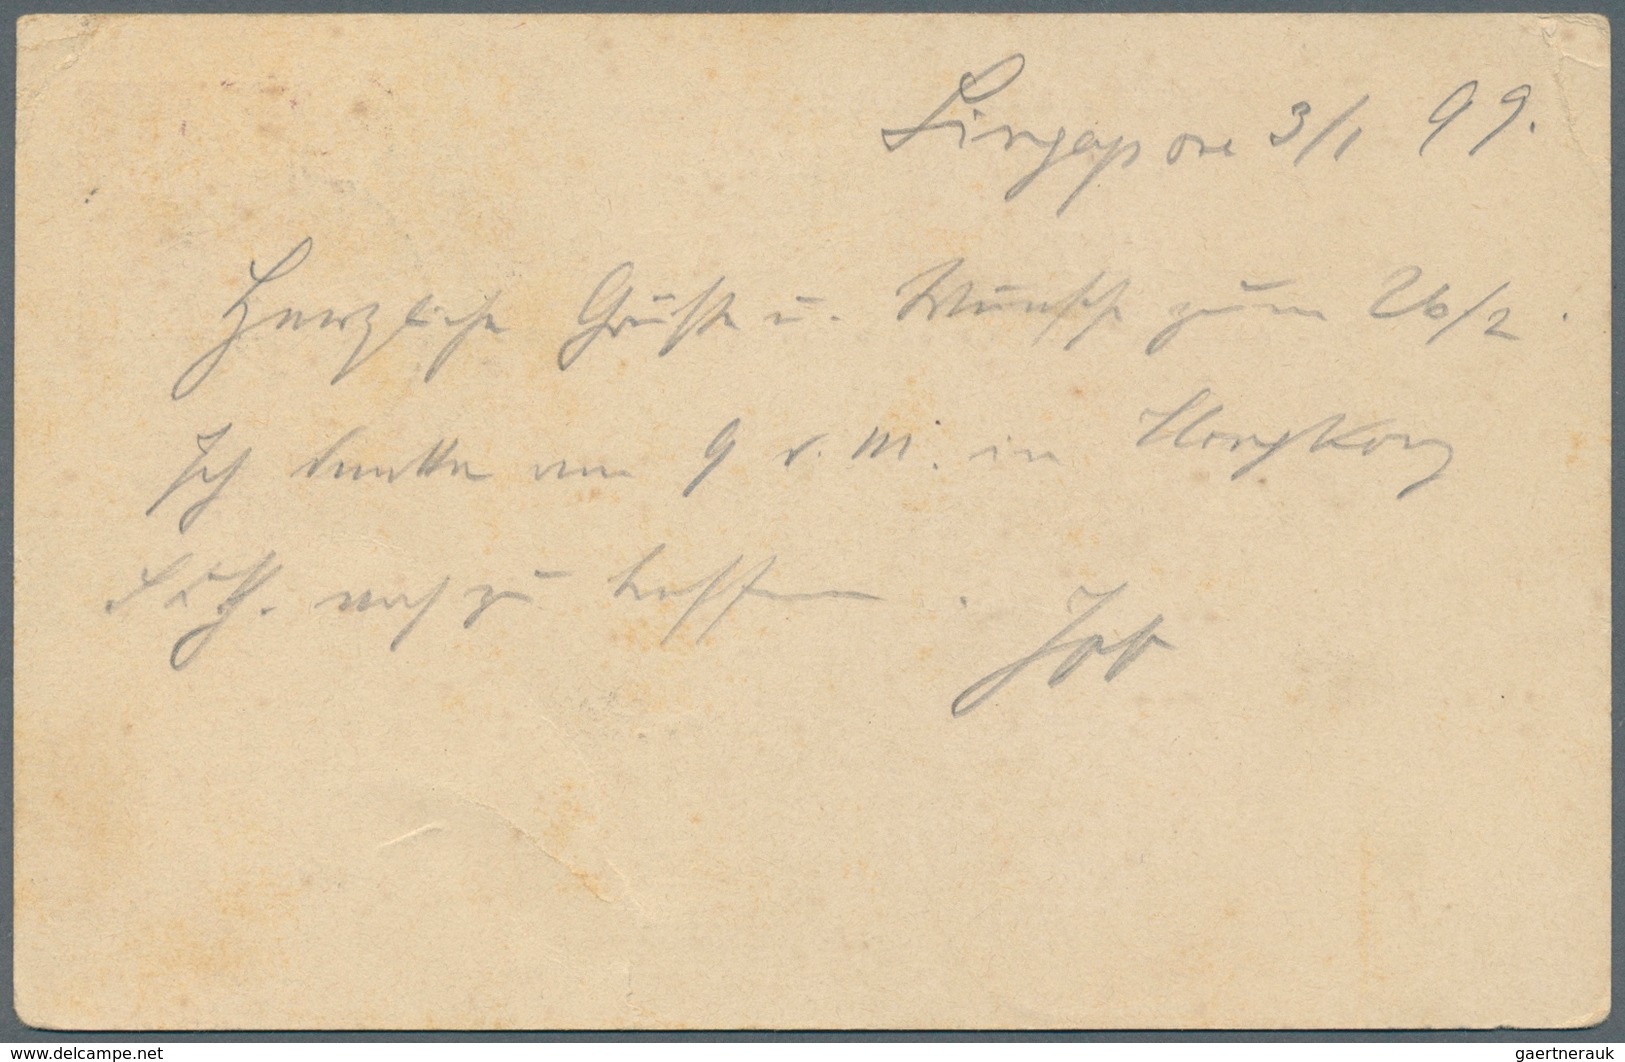 Singapore 3/1 99.
Herzliche Grüße u. Wünsche zum 26/2.
Ich am 9 d. M. in Hongkong
zu hoffen.
Job
www.delcampe.net
gaertnerauk